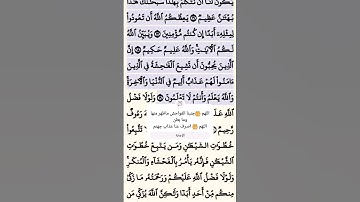 يَكُونُ لَنَا أَن نَّتَكَلَّمَ بِهَٰذَا سُبْحَٰنَكَ هَٰذَا
بُهْتَٰنٌ عَظِيمٌ ۝ يَعِظُكُمُ ٱللَّهُ أَن تَعُودُوا۟
لِمِثْلِهِۦٓ أَبَدًا إِن كُنتُم مُّؤْمِنِينَ ۝ وَيُبَيِّنُ ٱللَّهُ
لَكُمُ ٱلْءَايَٰتِ وَٱللَّهُ عَلِيمٌ حَكِيمٌ ۝ إِنَّ
ٱلَّذِينَ يُحِبُّونَ أَن تَشِيعَ ٱلْفَٰحِشَةُ فِى ٱلَّذِينَ
ءَامَنُوا۟ لَهُمْ عَذَابٌ أَلِيمٌ فِى ٱلدُّنْيَا وَٱلْءَاخِرَةِ
وَٱللَّهُ يَعْلَمُ وَأَنتُمْ لَا تَعْلَمُونَ ۝ وَلَوْلَا فَضْلُ
ٱللَّهِ رَءُوفٌ
اللهم جنبنا الفواحش ماظهر منها
وما بطن
رَّحِيمٌ
اللهم اصرف عنا عذاب جهنم
تَتَّبِعُوا۟
خُطُوَٰتِ ٱلشَّيْطَٰنِ وَمَن يَتَّبِعْ خُطُوَٰتِ
ٱلشَّيْطَٰنِ فَإِنَّهُۥ يَأْمُرُ بِٱلْفَحْشَآءِ وَٱلْمُنكَرِ
وَلَوْلَا فَضْلُ ٱللَّهِ عَلَيْكُمْ وَرَحْمَتُهُۥ مَا زَكَىٰ
مِنكُم مِّنْ أَحَدٍ أَبَدًا وَلَٰكِنَّ ٱللَّهَ يُزَكِّى مَن